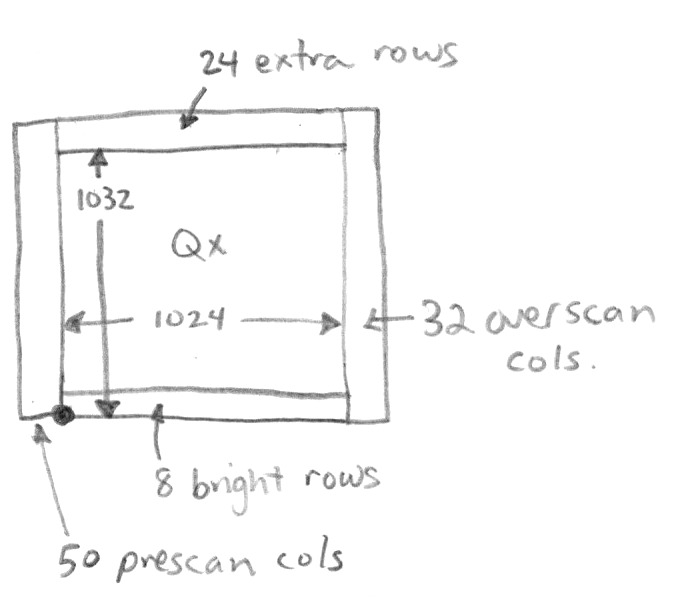 24 extra rows
1032
Qx
1024
32 overscan
cols.
8 bright rows
50 prescan cols